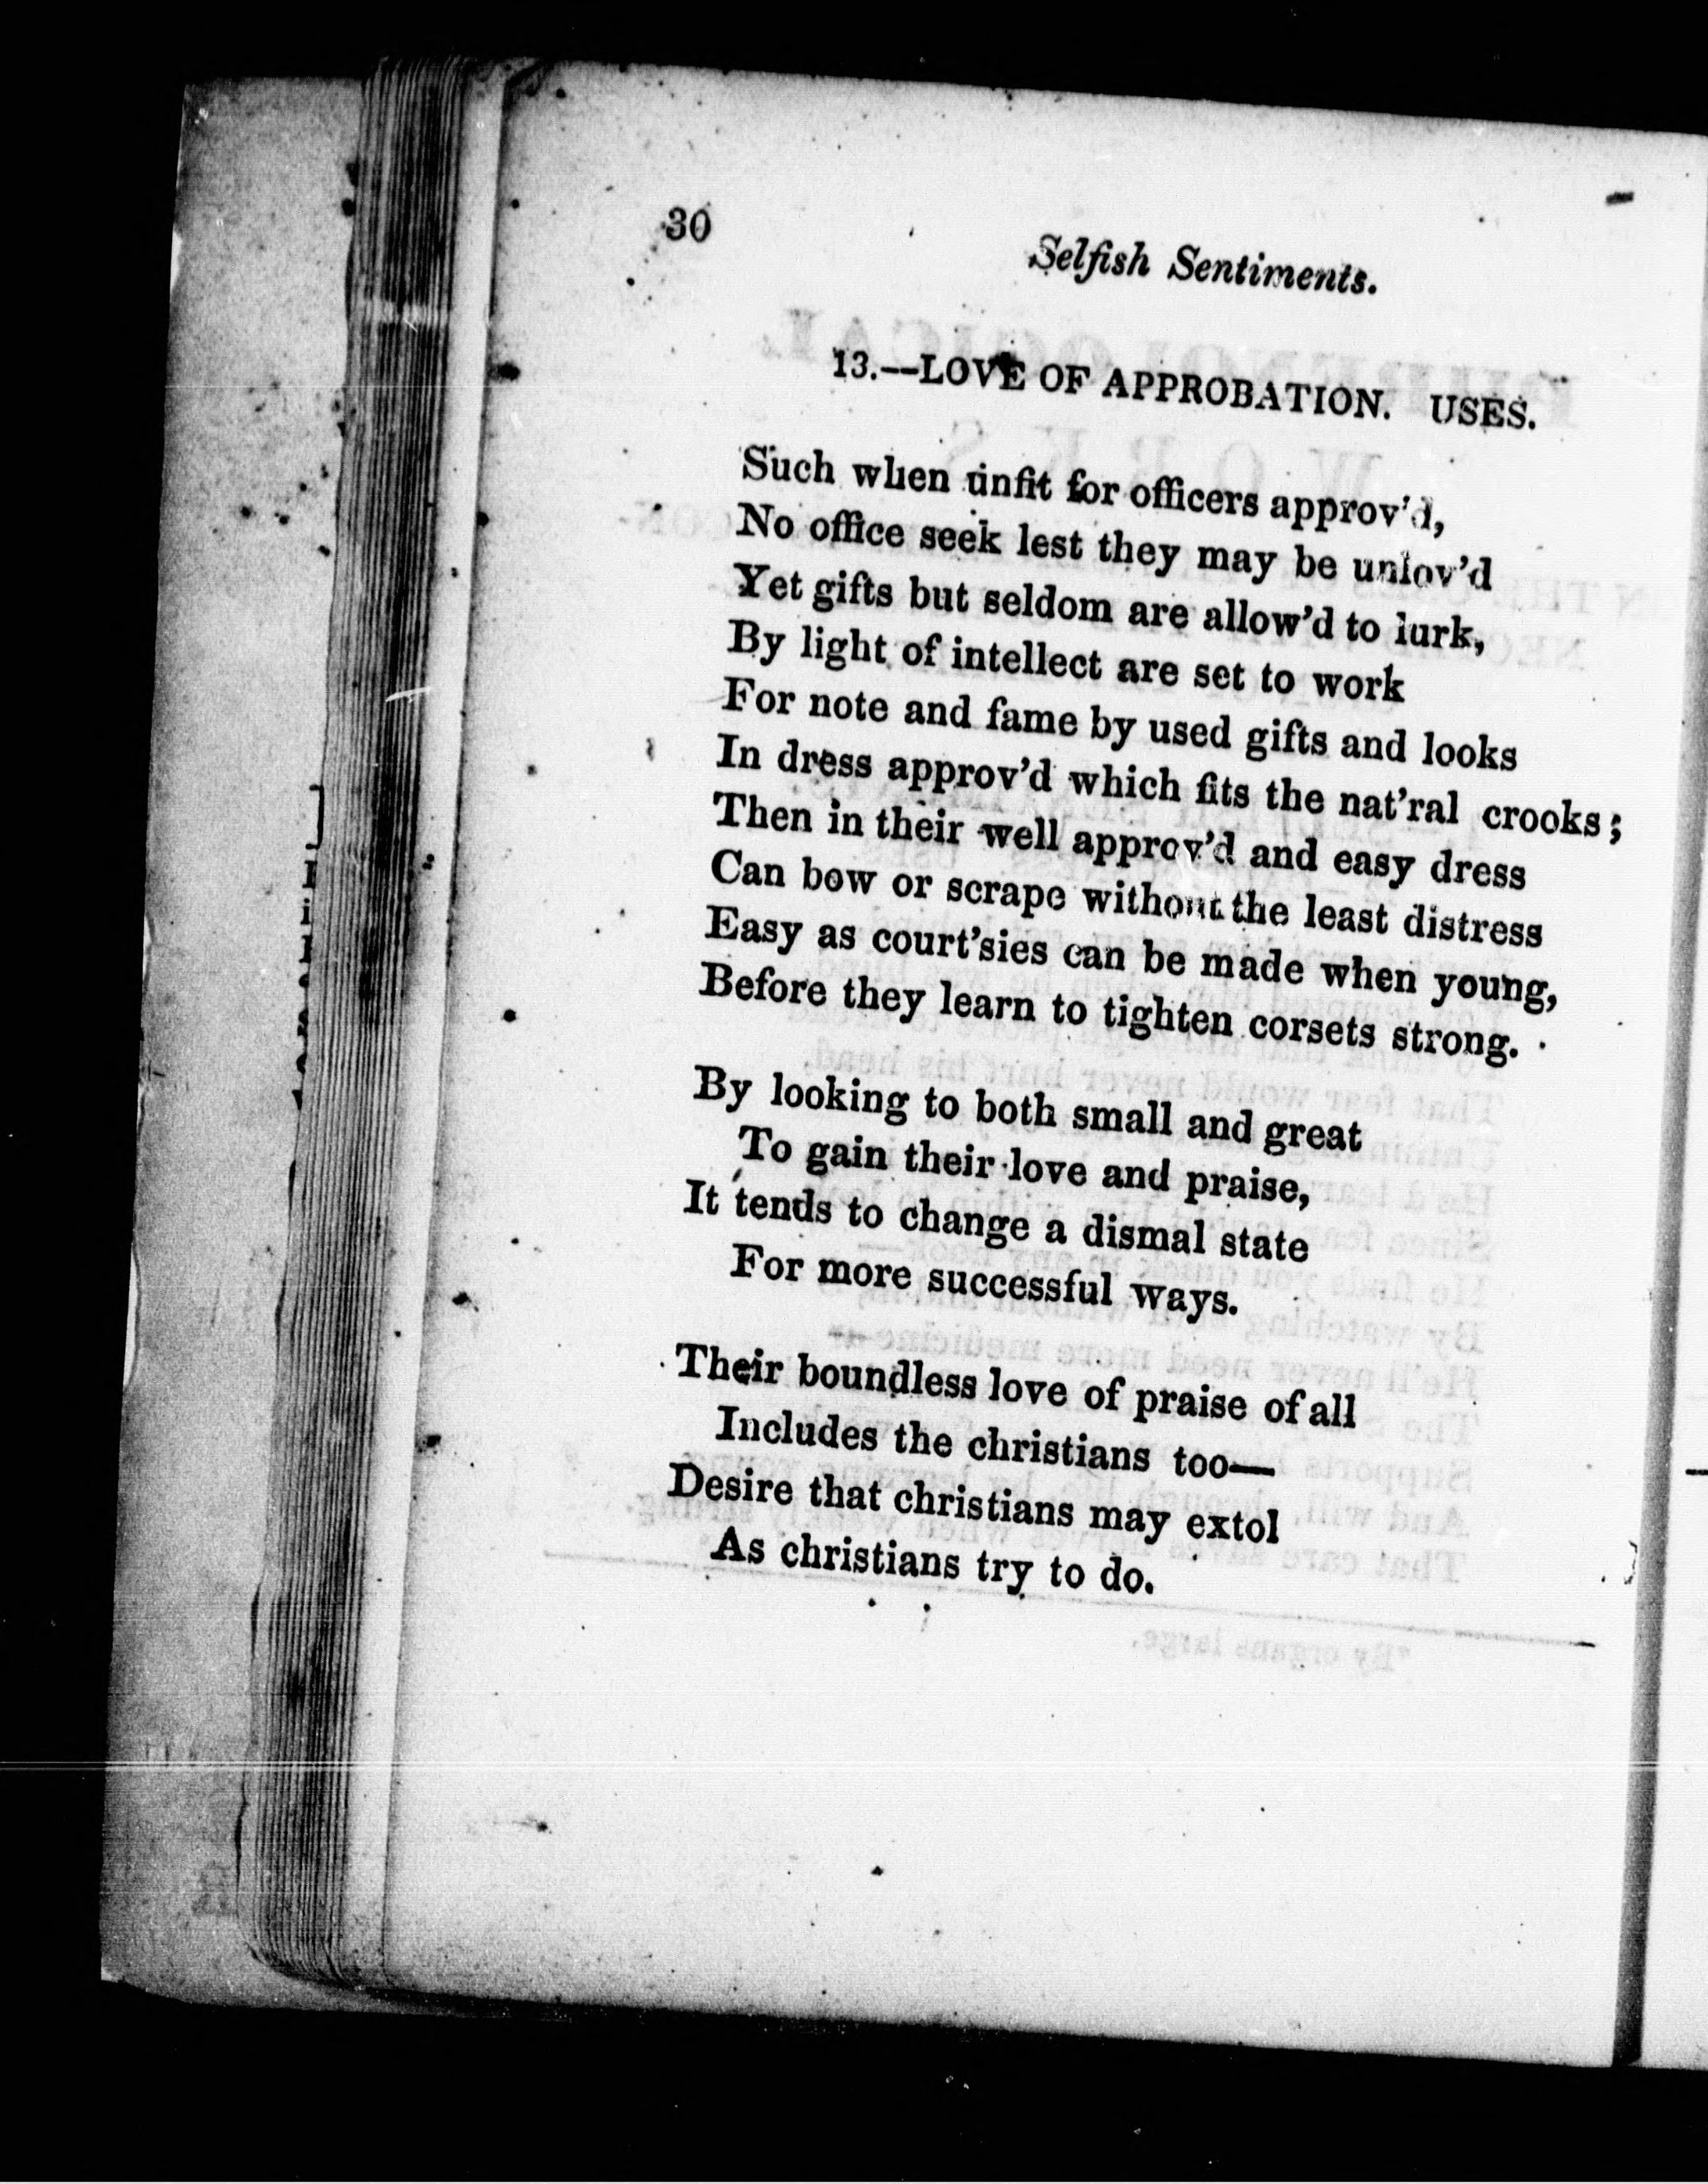 30
Selfish Sentiments.
13.—LOVE OF APPROBATION. USES.
Such when unfit for officers approv'd,
No office seek lest they may be unlov'd
Yet gifts but seldom are allow'd to lurk,
By light of intellect are set to work
For note and fame by used gifts and looks
In dress approv'd which fits the nat'ral crooks;
Then in their well approv'd and easy dress
Can bow or scrape without the least distress
Easy as court'sies can be made when young,
Before they learn to tighten corsets strong.
By looking to both small and great
To gain their love and praise,
It tends to change a dismal state
For more successful ways.
Their boundless love of praise of all
Includes the christians too—
Desire that christians may extol
As christians try to do.